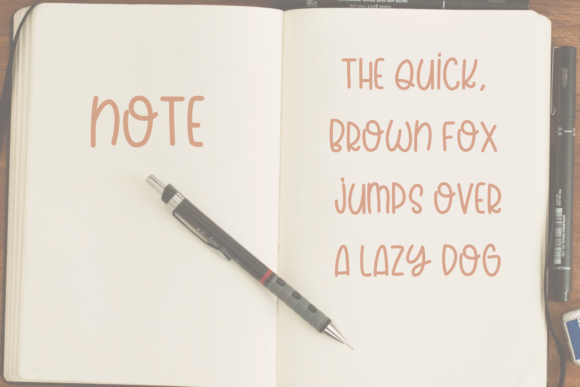 NOTE
THE QUICK,
BROWN FOX
JUMPS OVER
A LAZY DOG